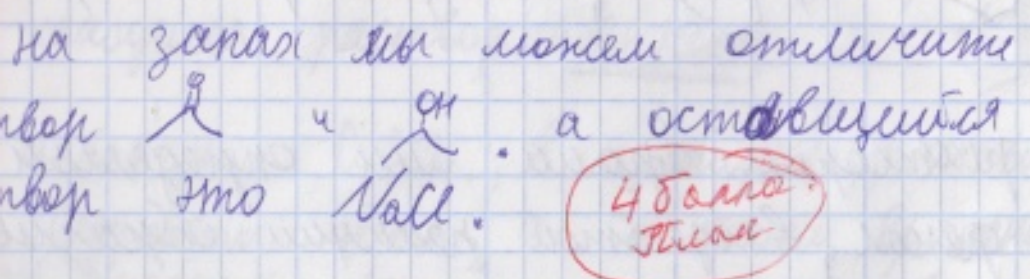 на запах мы можем отличити
твор O и OH . а оставщийся
твор это NaCl.
4 балла.
План